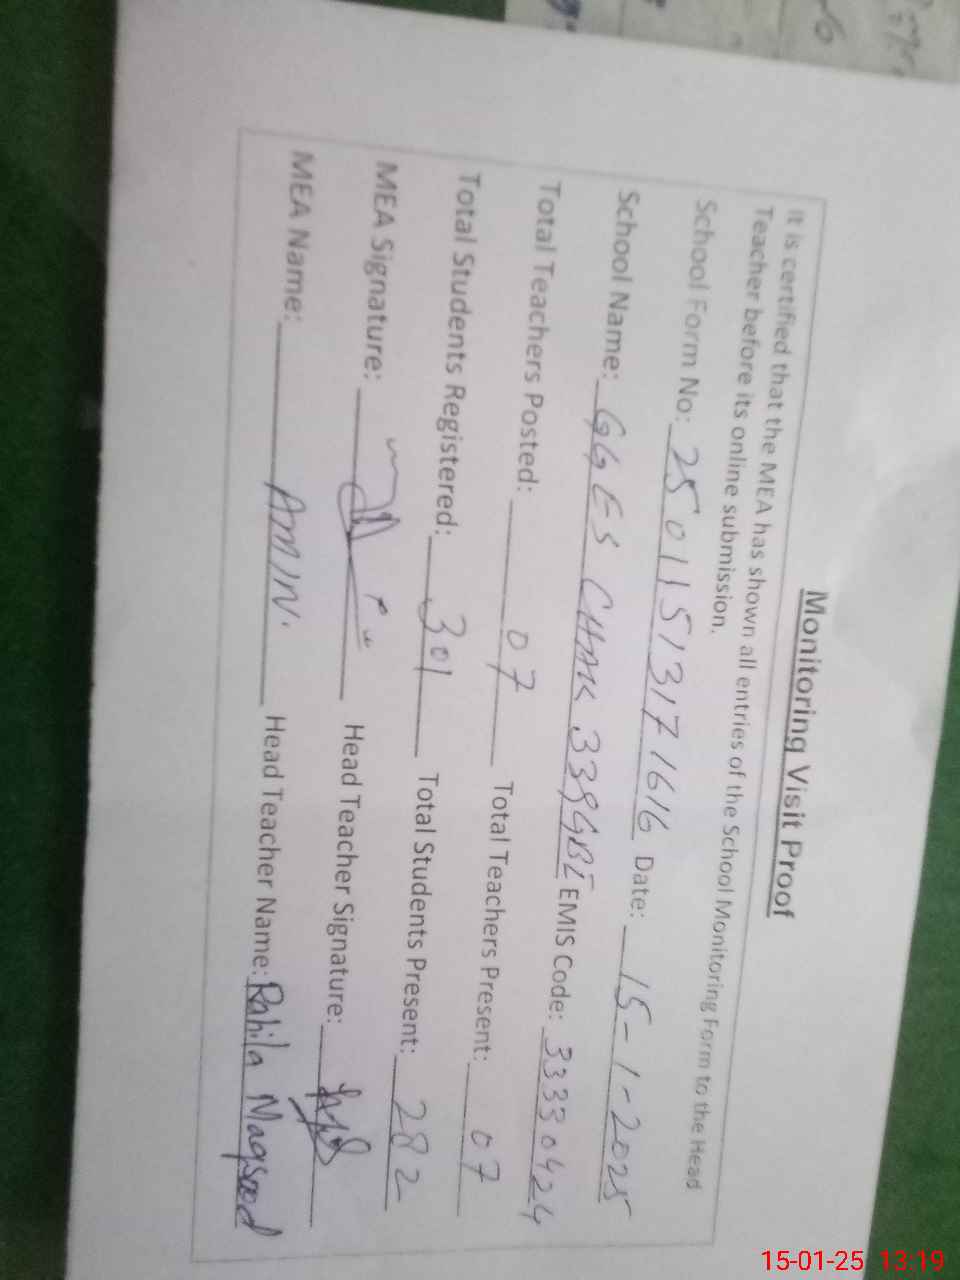 Monitoring Visit Proof
It is certified that the MEA has shown all entries of the School Monitoring Form to the Head
Teacher before its online submission.
School Form No: 25011513171616 Date: 15-1-2025
School Name: GGES CHAK 339GBE EMIS Code: 33330424
Total Teachers Posted: 07 Total Teachers Present: 07
Total Students Registered: 301 Total Students Present: 282
MEA Signature: Head Teacher Signature:
MEA Name: AMIN. Head Teacher Name: Rahila Maqsood
15-01-25 13:19